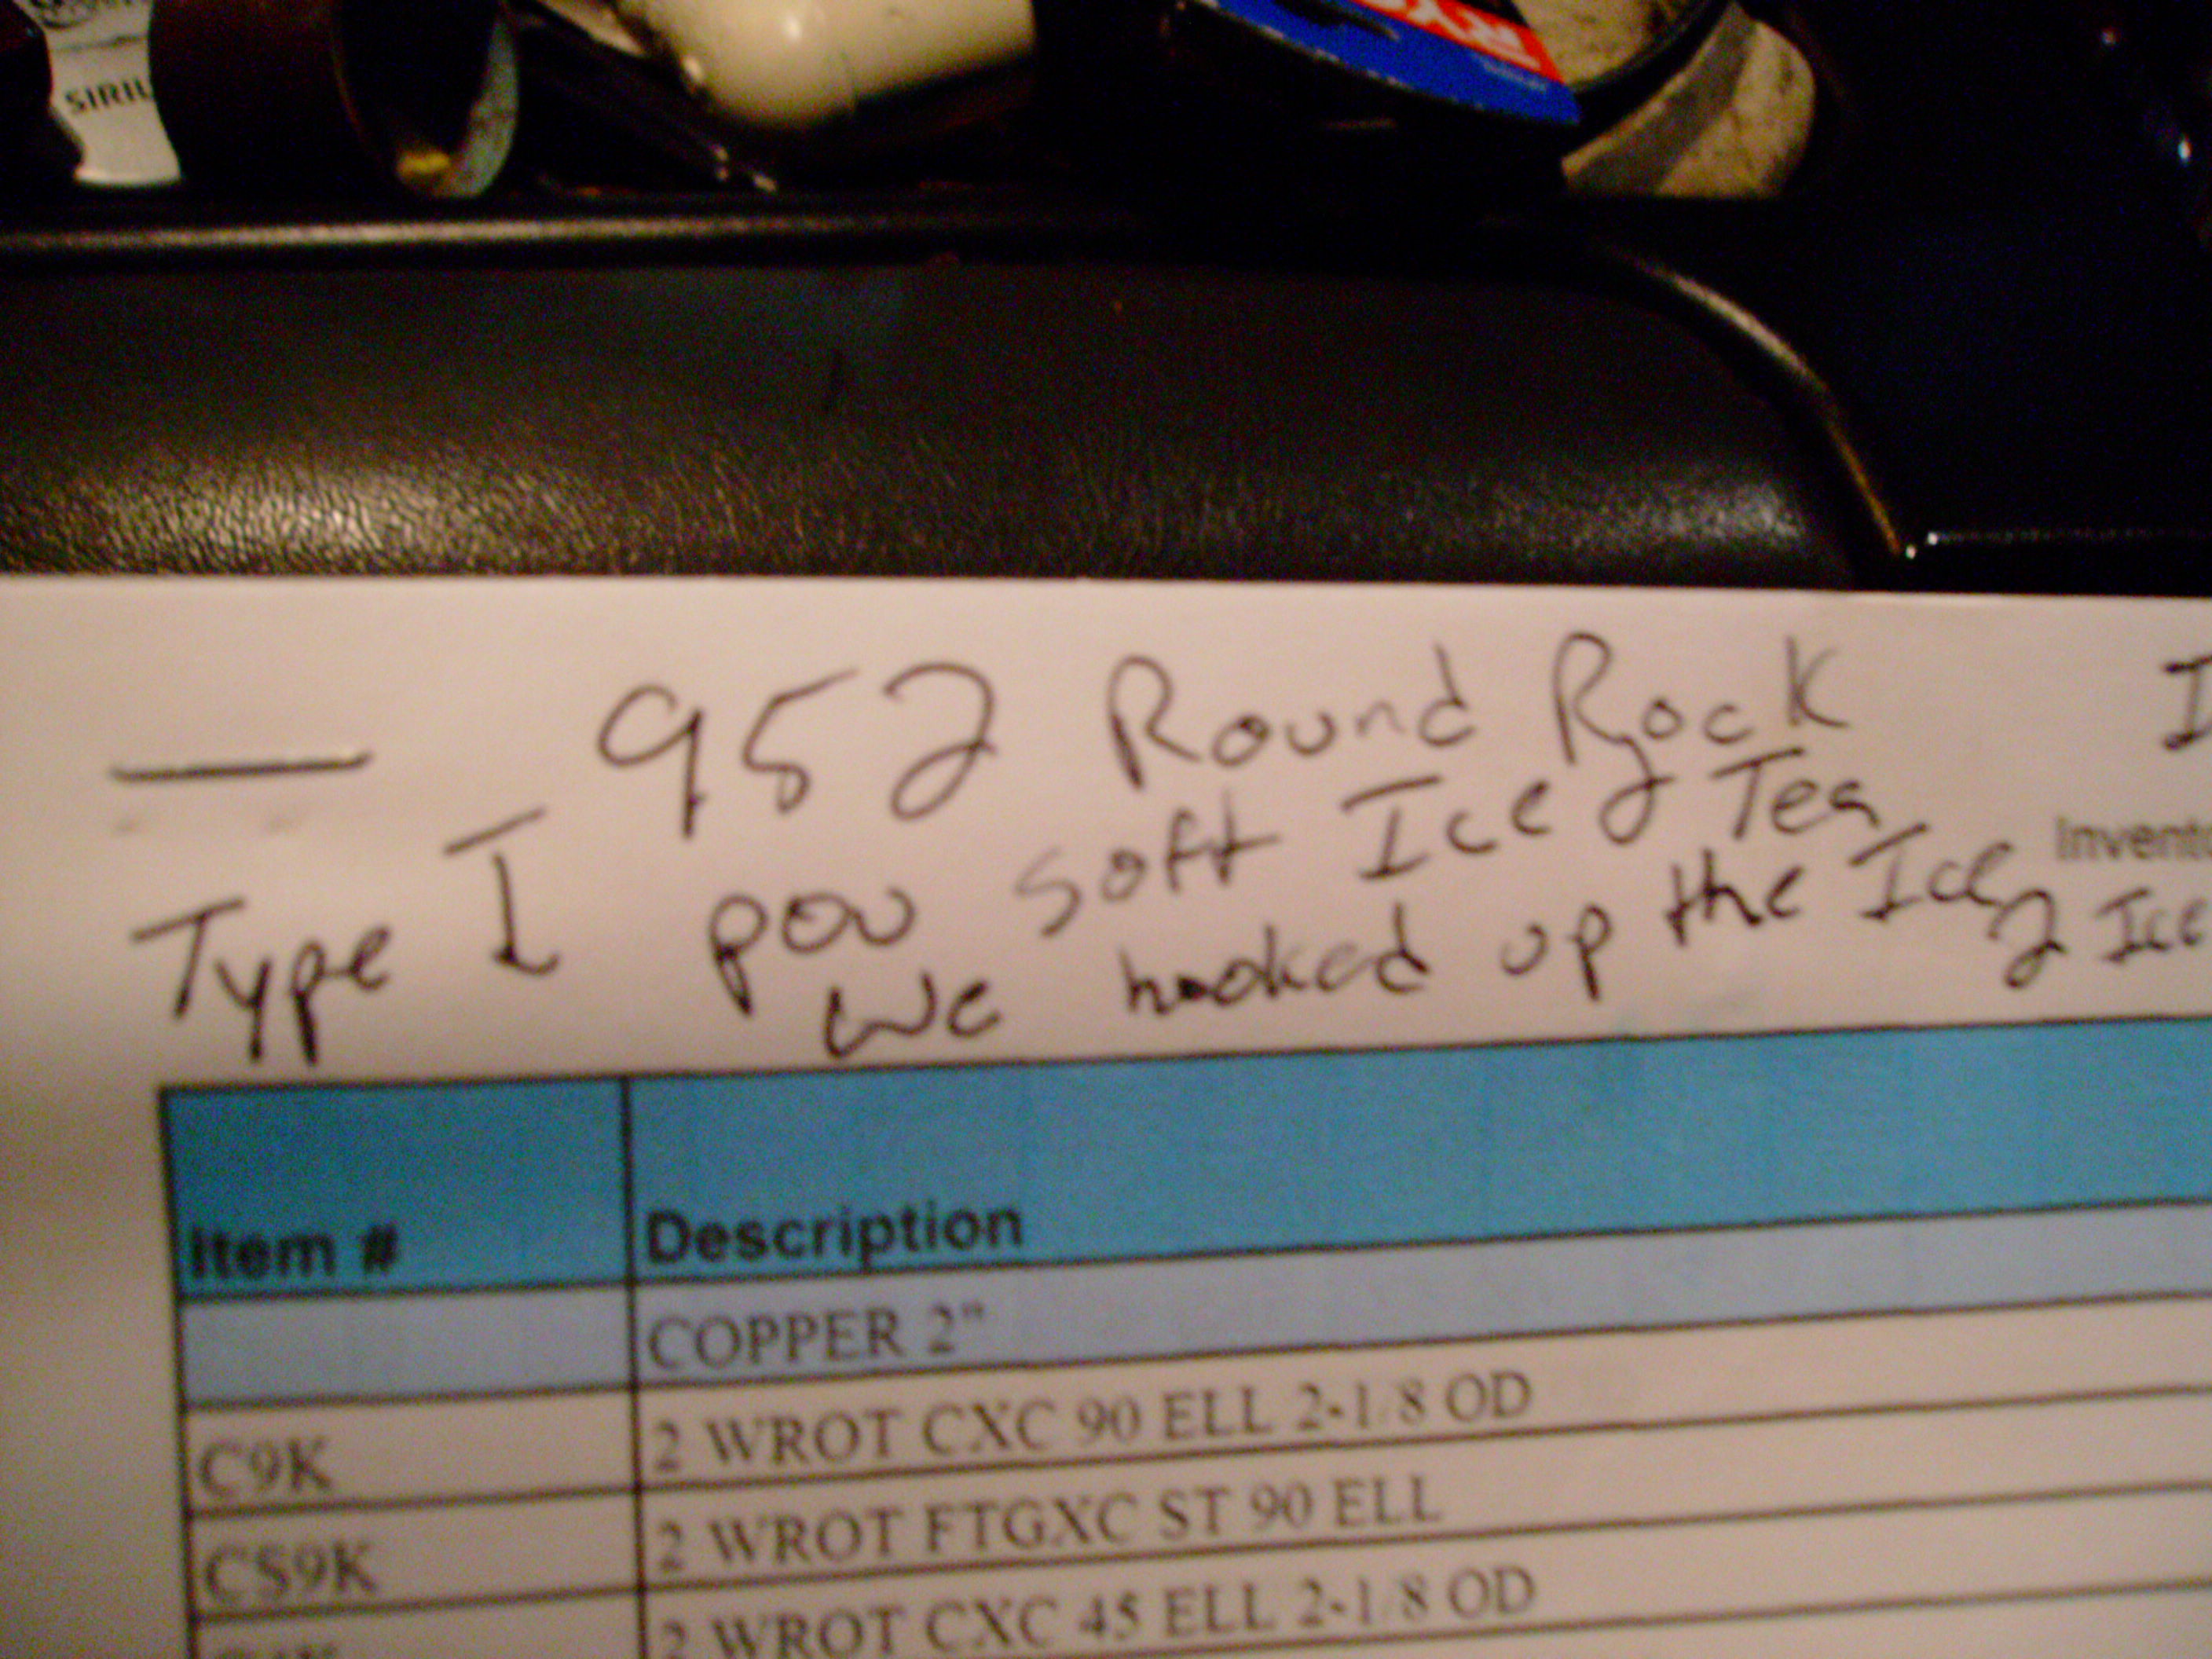 SIRIU
RY
952 Round Rock I
Type I pou soft Ice 2 Tea
Invento
We hooked up the Ice 2 Ice
Item # Description
COPPER 2"
C9K 2 WROT CXC 90 ELL 2-1/8 OD
CS9K 2 WROT FTGXC ST 90 ELL
2 WROT CXC 45 ELL 2-1/8 OD